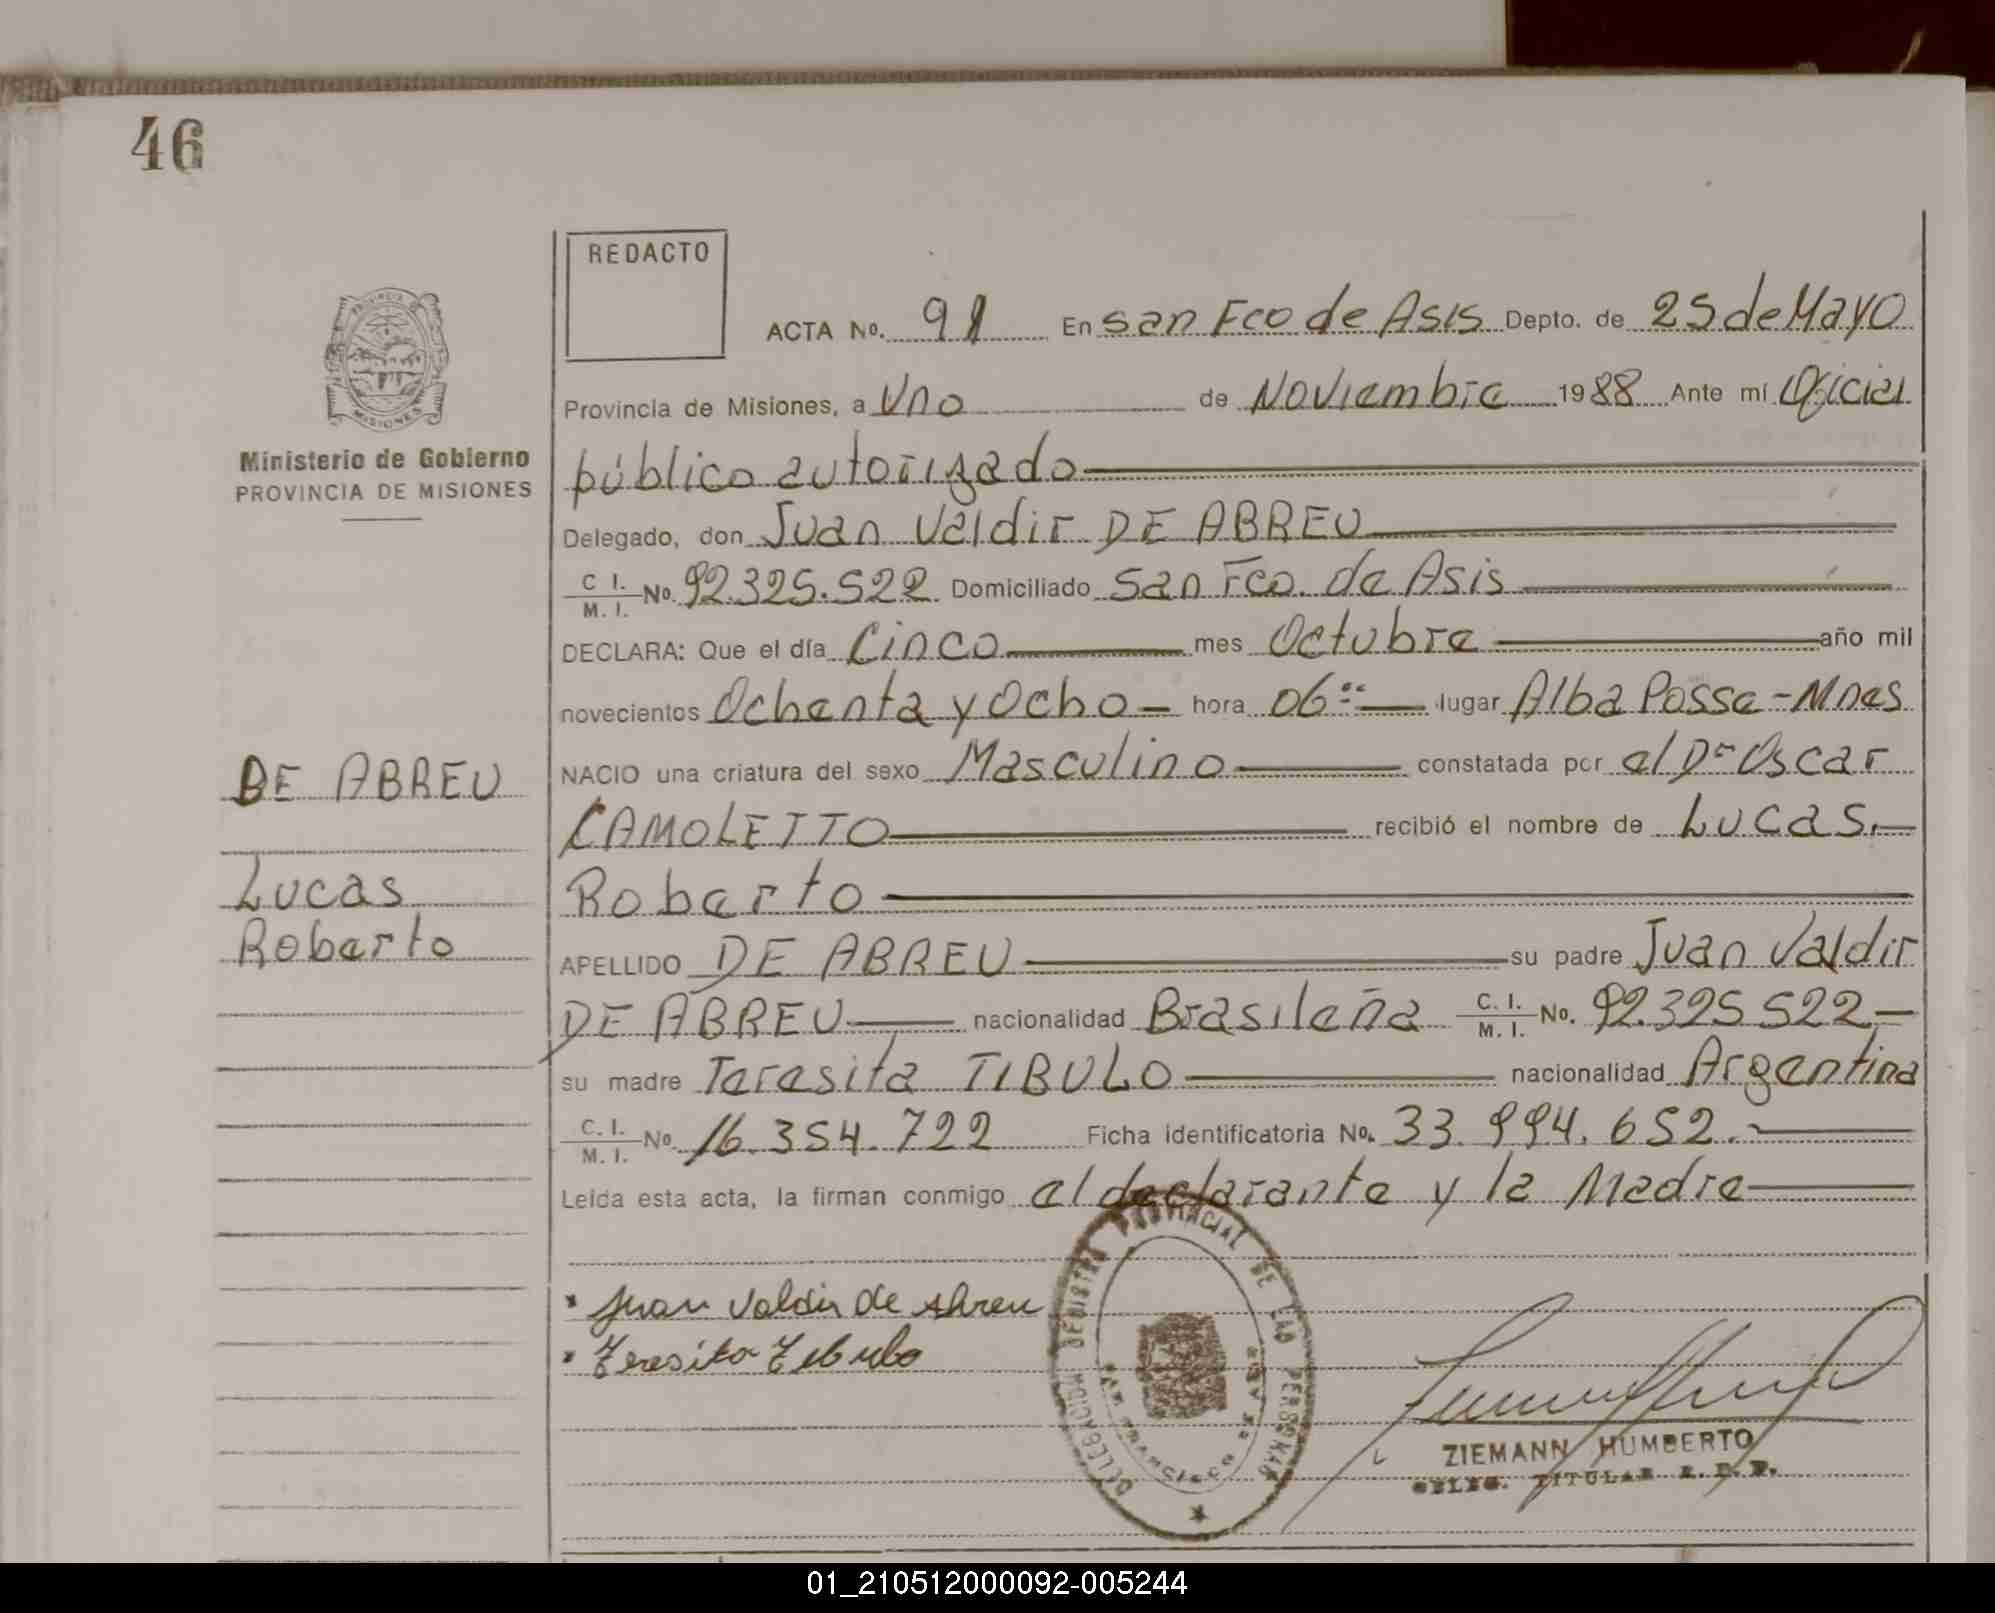 46
REDACTO
ACTA No. 91 En San Fco de Asis Depto. de 25 de Mayo
Provincia de Misiones, a Uno de Noviembre 1988 Ante mí Oficial
público autorizado
Delegado, don Juan Valdir DE ABREU
C I. M. I. No. 92.325.522 Domiciliado San Fco. de Asis
DECLARA: Que el día Cinco mes Octubre año mil
novecientos Ochenta y Ocho hora 06 lugar Alba Posse - Mnes
NACIO una criatura del sexo Masculino constatada por el Dr Oscar
CAMOLETTO recibió el nombre de Lucas.
Roberto
APELLIDO DE ABREU su padre Juan Valdir
DE ABREU nacionalidad Brasileña C. I. M. I. No. 92.325 522
su madre Teresita TIBULO nacionalidad Argentina
C. I. M. I. No. 16.354.722 Ficha identificatoria No. 33.994.652.
Leída esta acta, la firman conmigo el declarante y la Madre
MISIONES
Ministerio de Gobierno
PROVINCIA DE MISIONES
DE ABREU
Lucas
Roberto
Juan Valdir de Abreu
Teresita Tibulo
DELEGACION REGISTRO PROVINCIAL DE LAS PERSONAS
SAN FRANCISCO DE ASIS
ZIEMANN HUMBERTO
DELEG. TITULAR R. P. P.
01_210512000092-005244